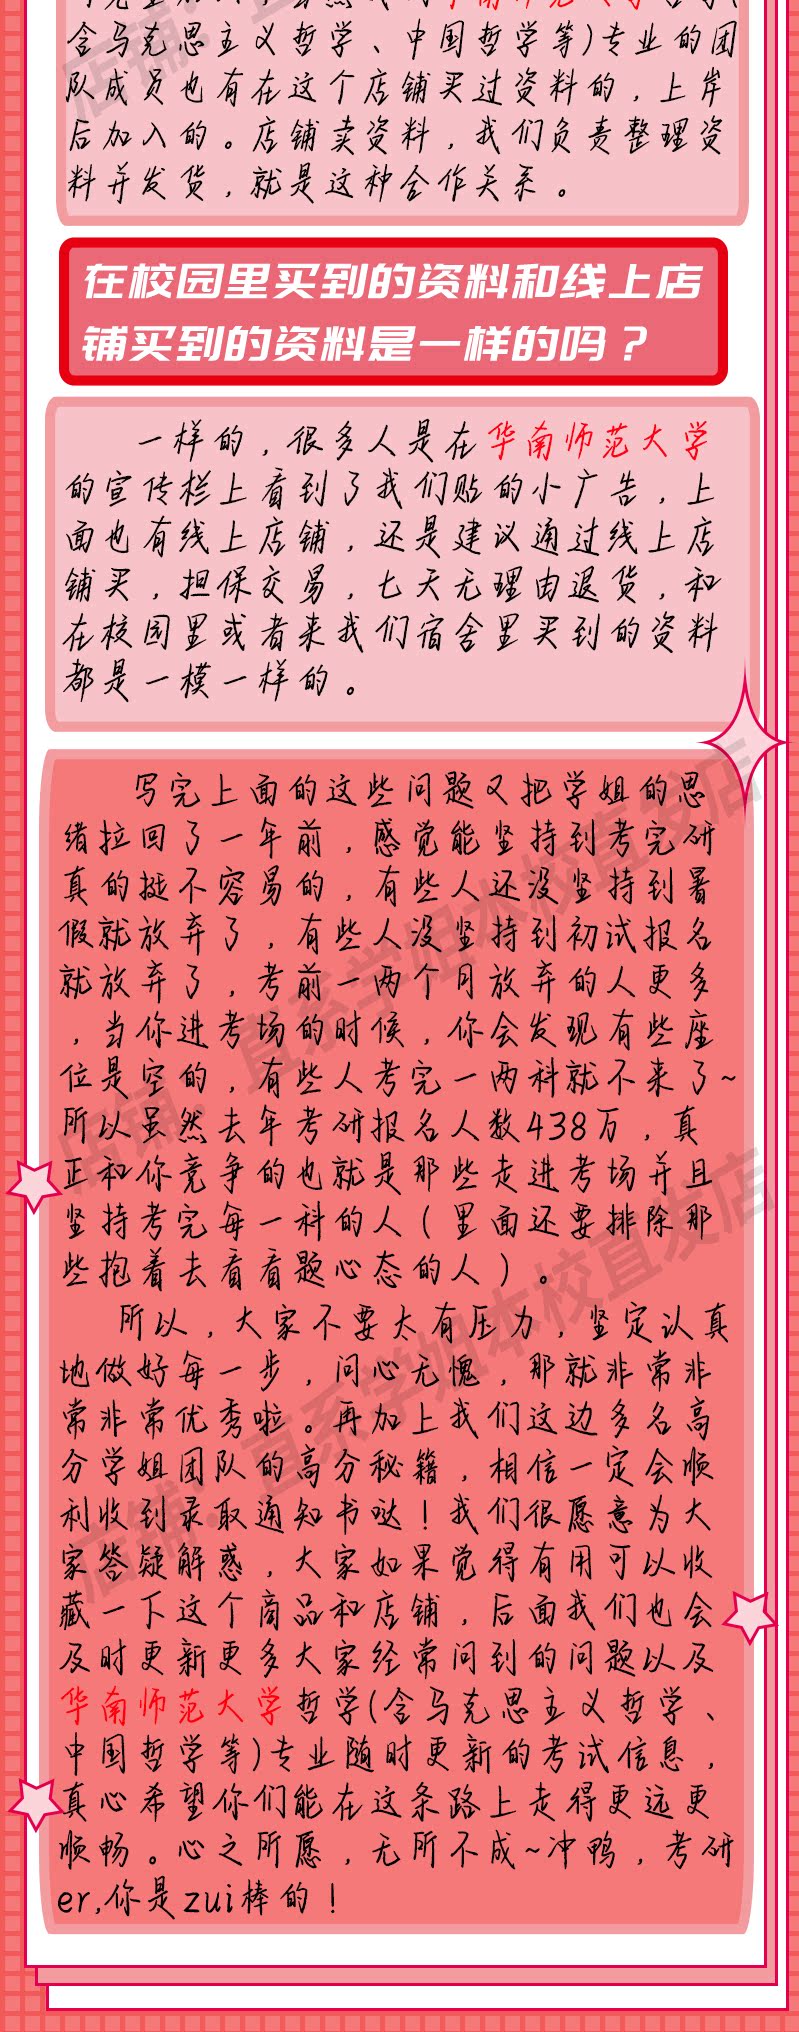 含马克思主义哲学、中国哲学等)专业的团
队成员也有在这个店铺买过资料的，上岸
后加入的。店铺卖资料，我们负责整理资
料并发货，就是这种合作关系。
在校园里买到的资料和线上店
铺买到的资料是一样的吗？
一样的，很多人是在华南师范大学
的宣传栏上看到了我们贴的小广告，上
面也有线上店铺，还是建议通过线上店
铺买，担保交易，七天无理由退货，和
在校园里或者来我们宿舍里买到的资料
都是一模一样的。
写完上面的这些问题又把学姐的思
绪拉回了一年前，感觉能坚持到考完研
真的挺不容易的，有些人还没坚持到暑
假就放弃了，有些人没坚持到初试报名
就放弃了，考前一两个月放弃的人更多
，当你进考场的时候，你会发现有些座
位是空的，有些人考完一两科就不来了~
所以虽然去年考研报名人数438万，真
正和你竞争的也就是那些走进考场并且
坚持考完每一科的人（里面还要排除那
些抱着去看看题心态的人）。
所以，大家不要太有压力，坚定认真
地做好每一步，问心无愧，那就非常非
常非常优秀啦。再加上我们这边多名高
分学姐团队的高分秘籍，相信一定会顺
利收到录取通知书哒！我们很愿意为大
家答疑解惑，大家如果觉得有用可以收
藏一下这个商品和店铺，后面我们也会
及时更新更多大家经常问到的问题以及
华南师范大学哲学(含马克思主义哲学、
中国哲学等)专业随时更新的考试信息，
真心希望你们能在这条路上走得更远更
顺畅。心之所愿，无所不成~冲鸭，考研
er,你是zui棒的！
店铺：直系学姐本校直发店
店铺：直系学姐本校直发店